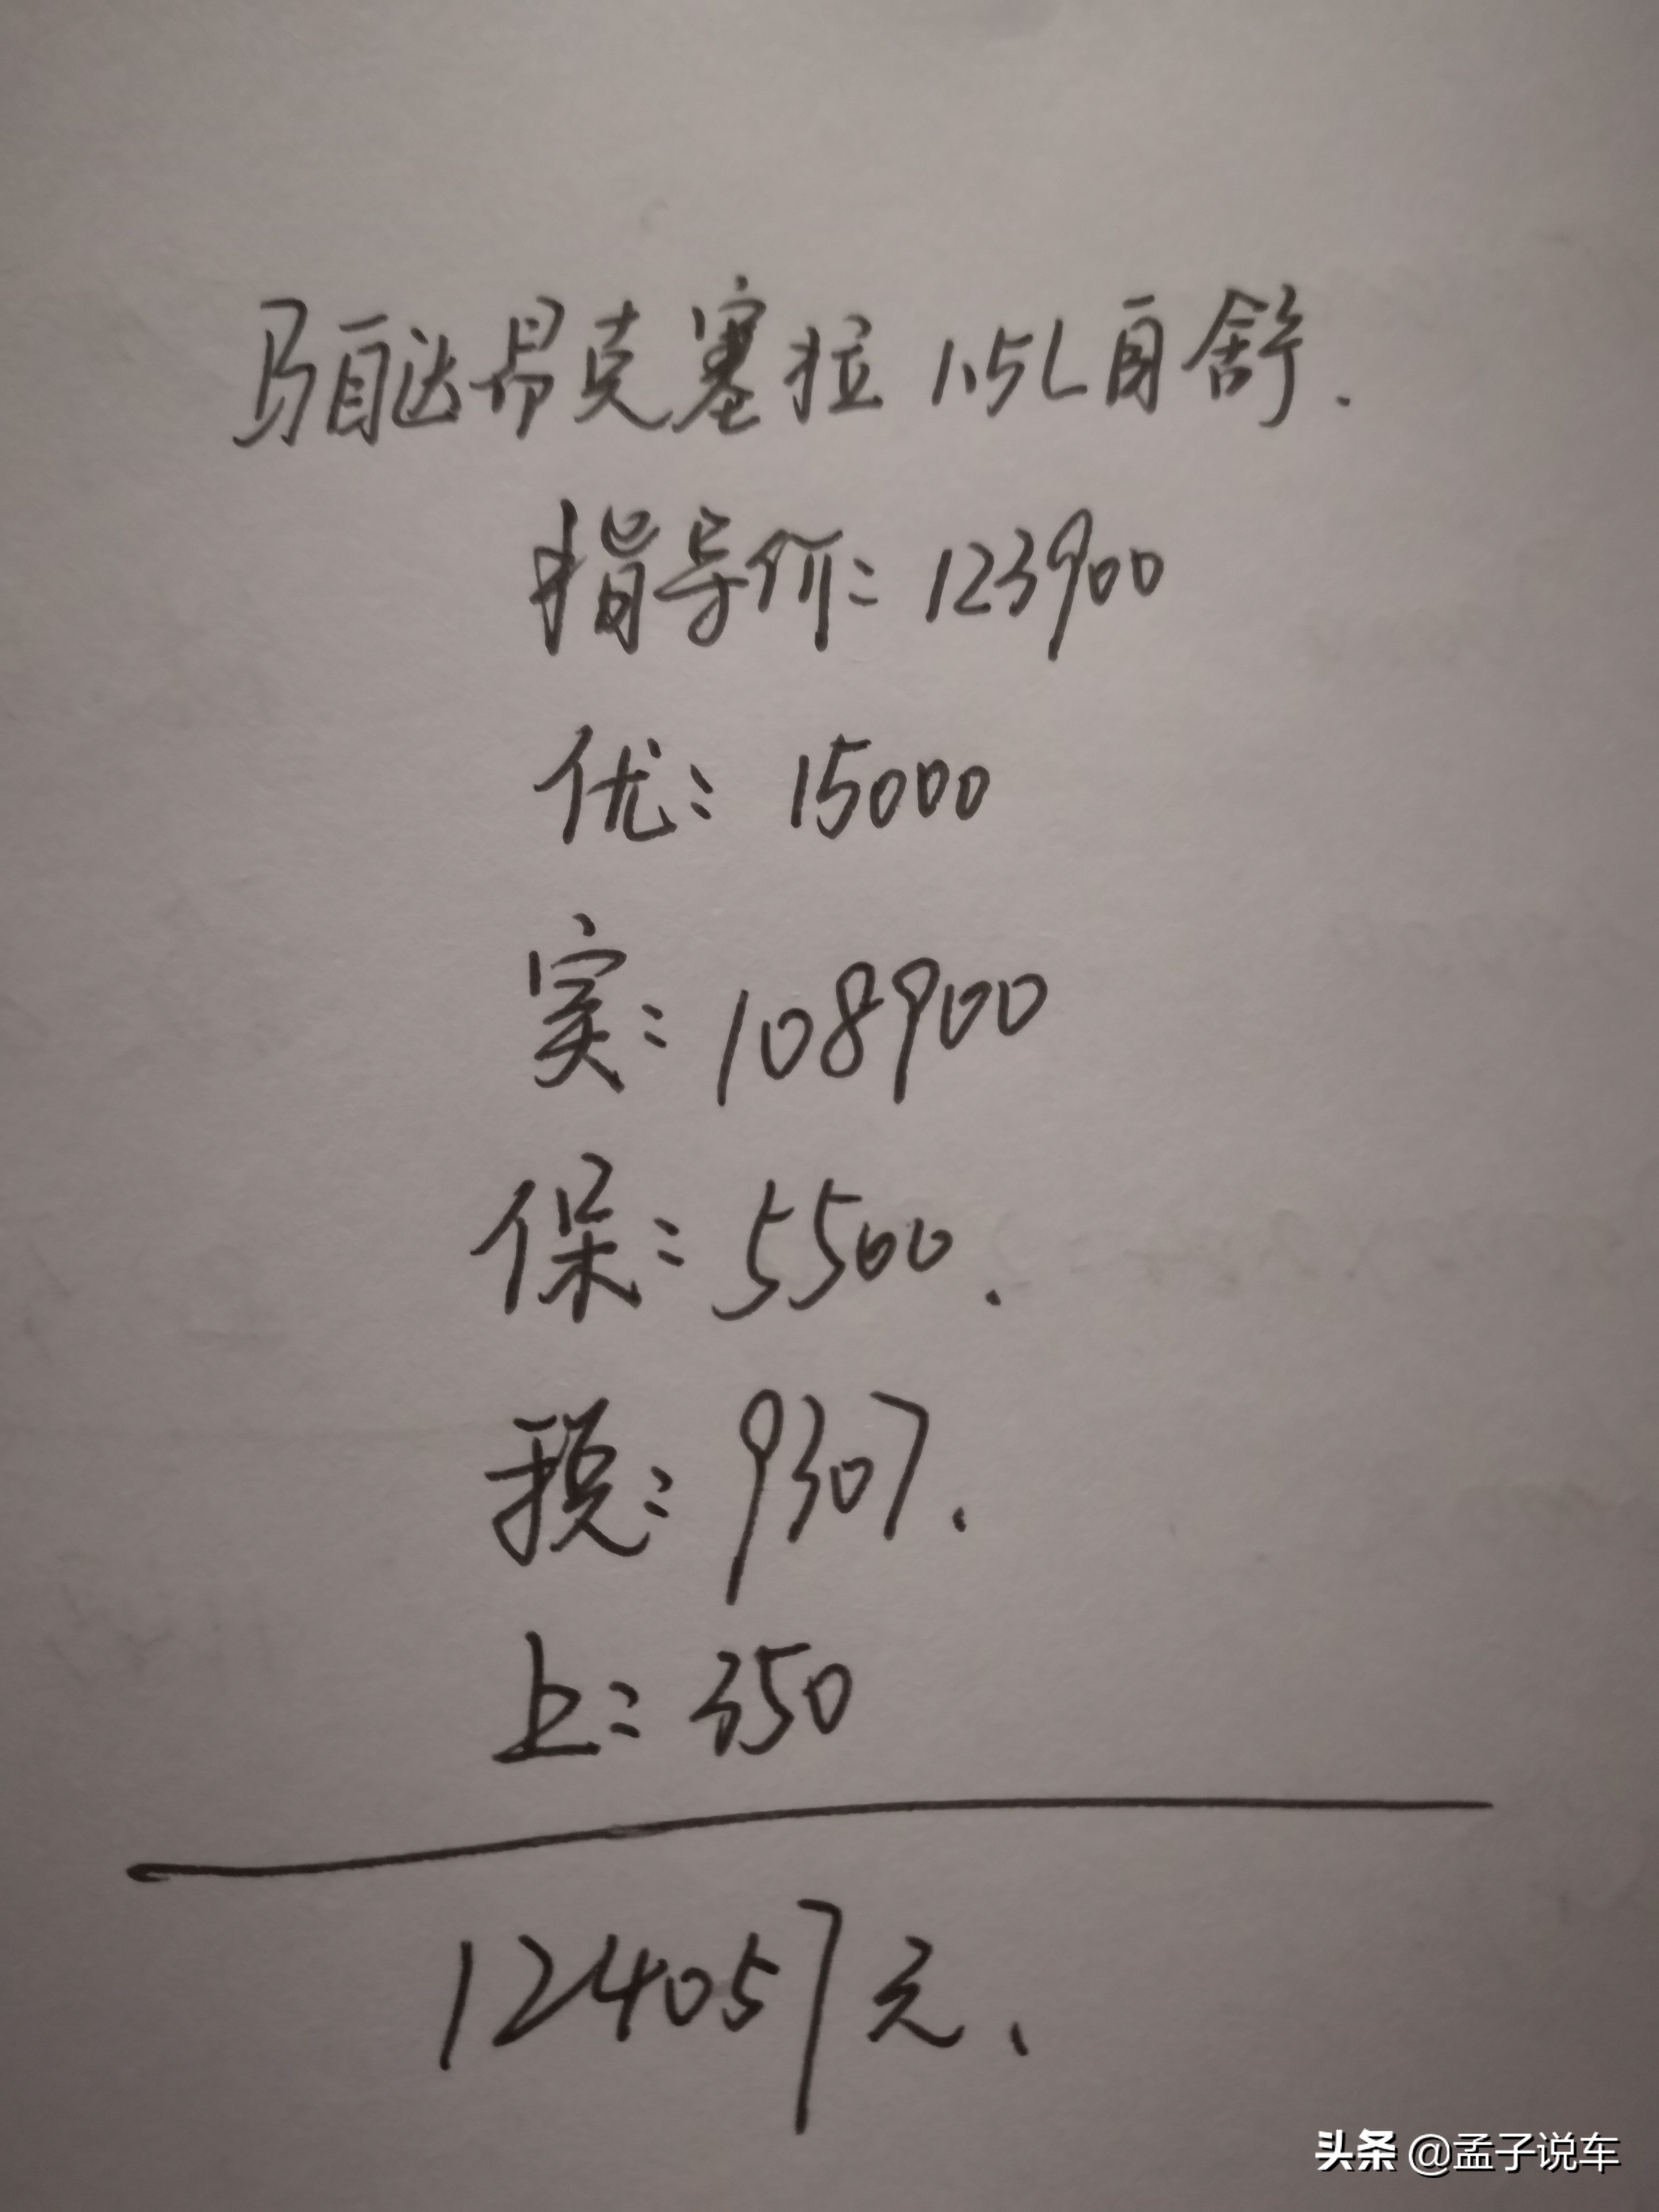 马自达昂克塞拉 1.5L自舒.
指导价: 123900
优: 15000
实: 108900
保: 5500.
税: 9307.
上: 350
124057元.
头条 @孟子说车